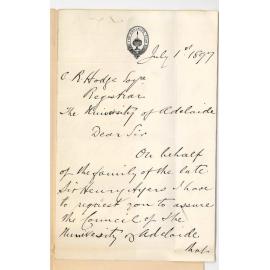 July 1st 1897
C R Hodge Esqre
Registrar
The University of Adelaide
Dear Sir
On behalf
of the family of the late
Sir Henry Ayers I have
to request you to assure
the Council of the
University of Adelaide